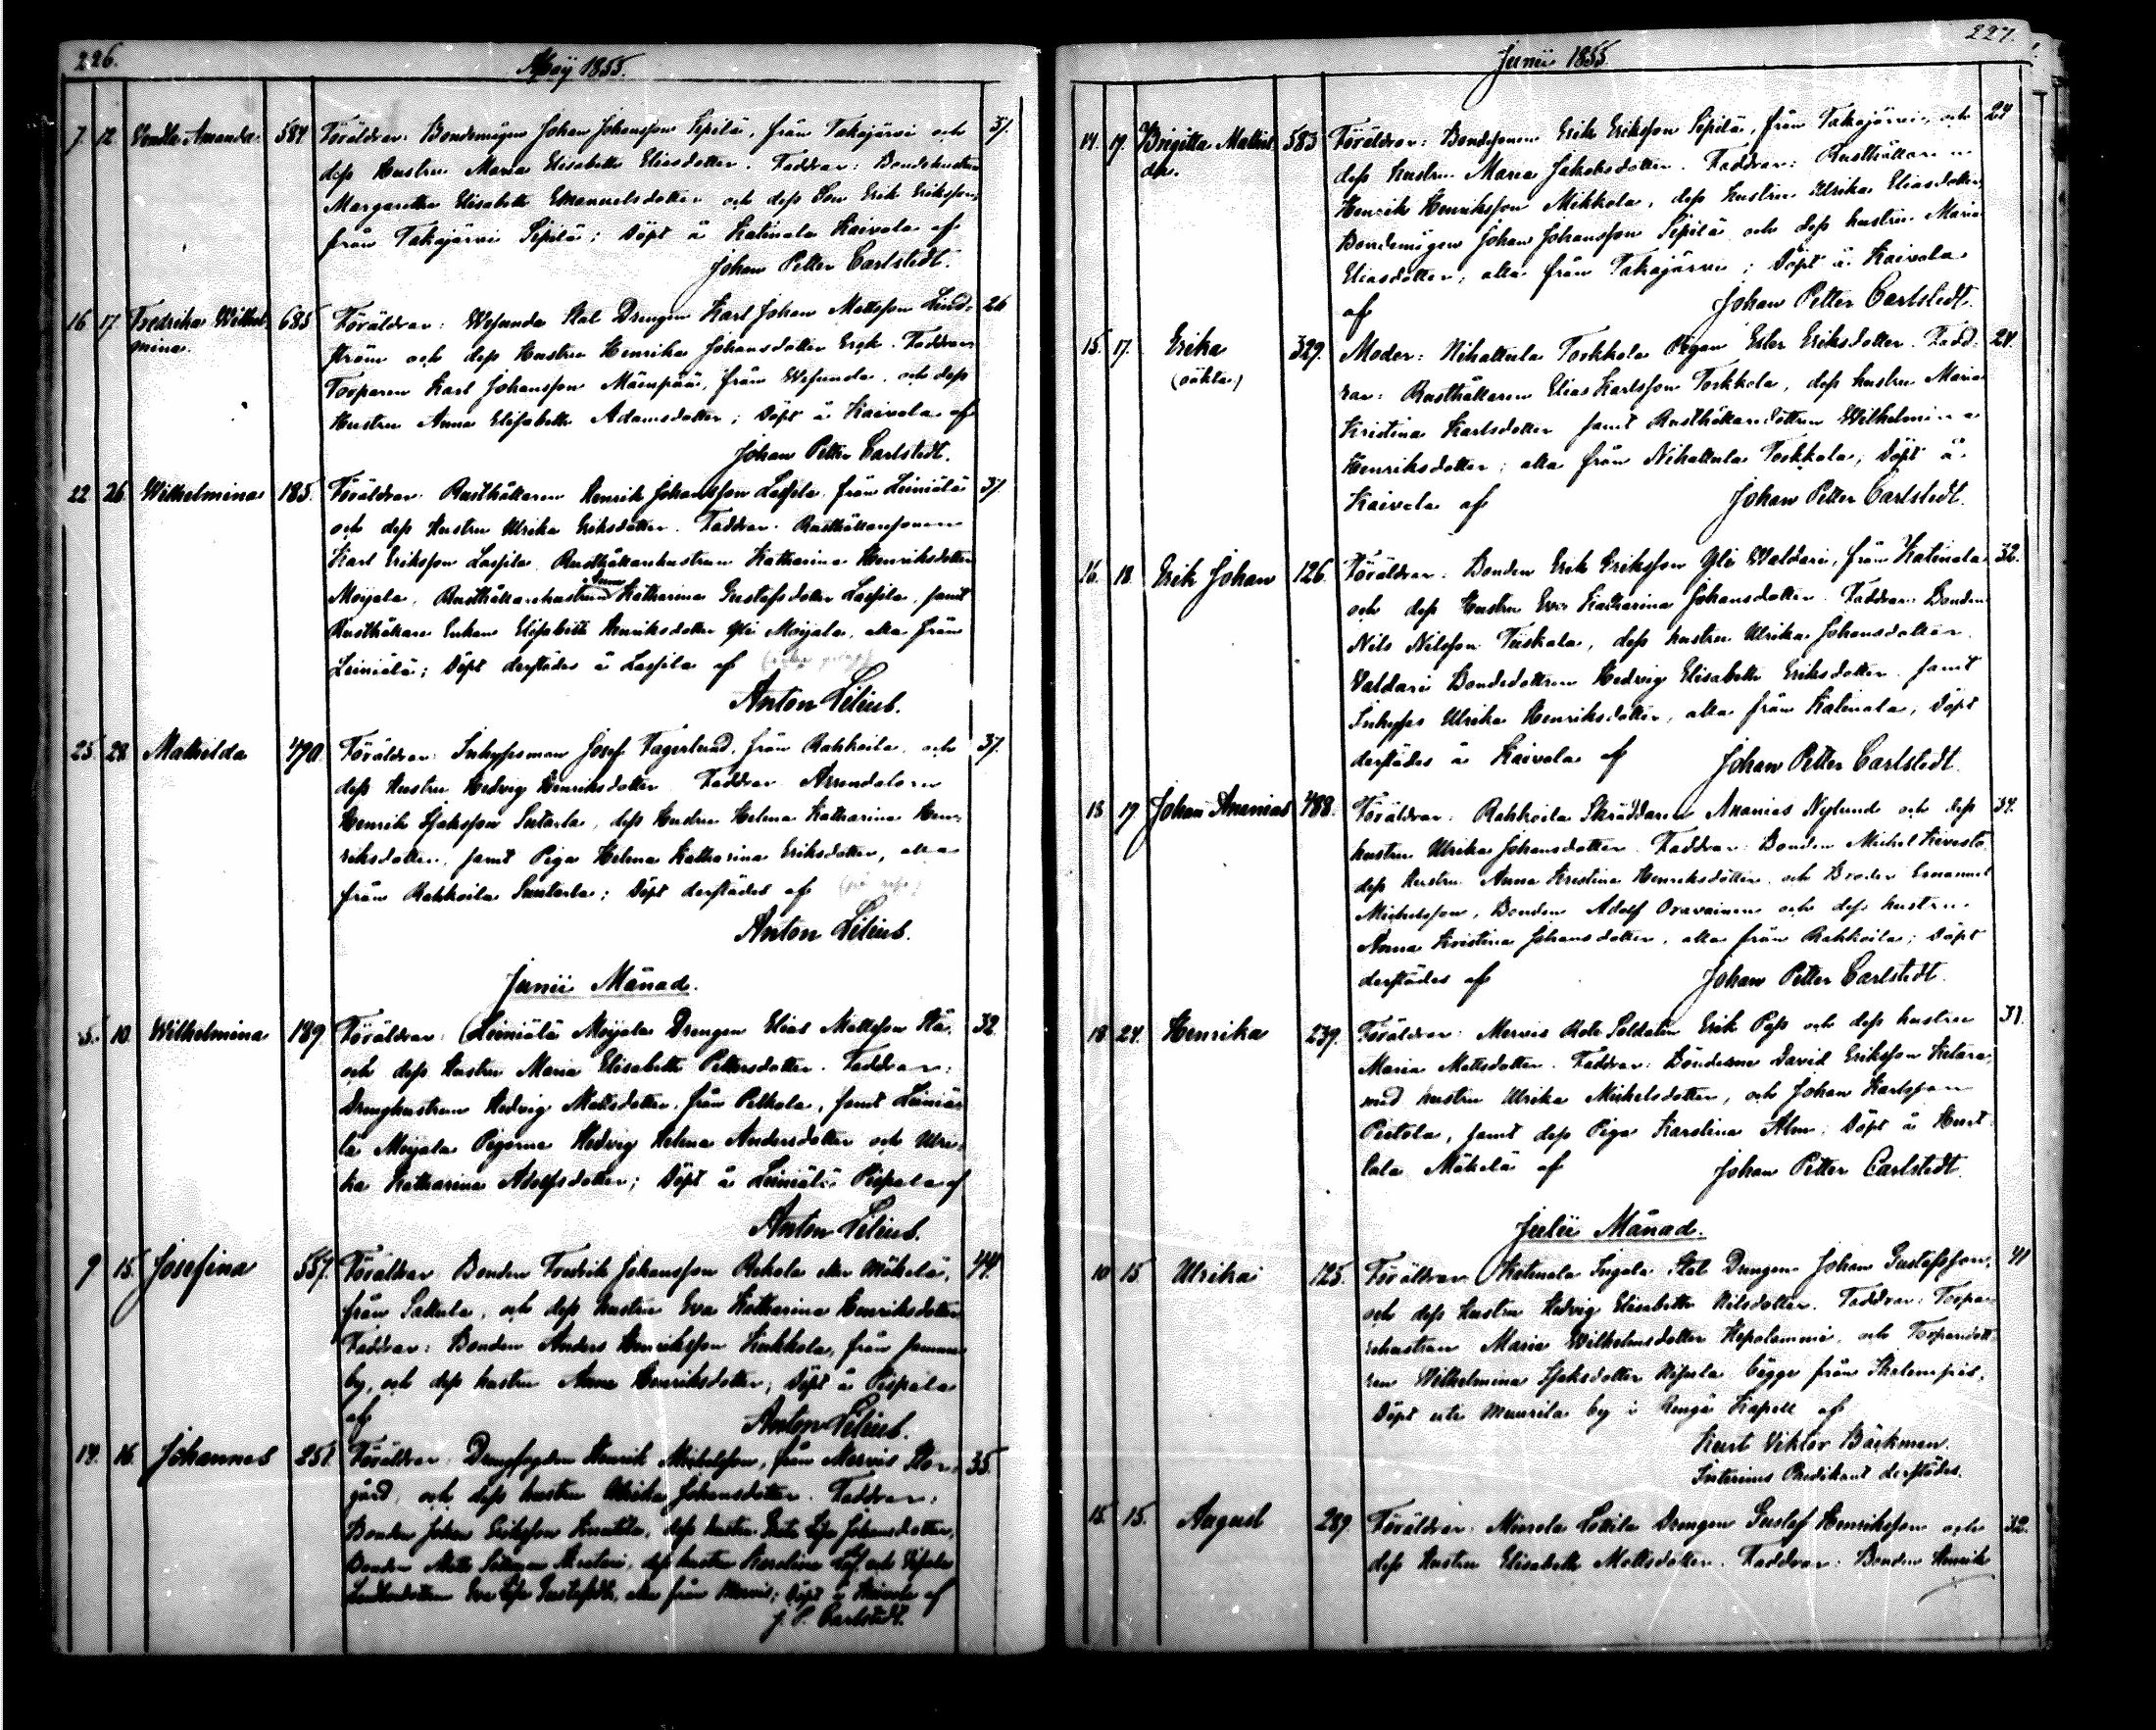 226.
Maij 1855.
7. 12. Vendla Amanda. 584 Föräldrar: Bondemågen Johan Johansson Sepilä, från Takajärvi och 31.
dess Hustru Maria Elisabeth Eliasdotter. Faddrar: Bondehustrun
Margaretha Elisabeth Emanuelsdotter och dess Son Erik Eriksson,
från Takajärvi Sepilä; Döpt å Katinala Kaivola af
Johan Petter Carlstedt.
16 17 Fredrika Wilhel- 685 Föräldrar: Wesunda Stat Drengen Karl Johan Mattsson Lind- 26
mina. ström och dess Hustru Henrika Johansdotter Erek. Faddrar
Torparen Karl Johansson Mäenpää, från Wesunda, och dess
Hustru Anna Elisabeth Adamsdotter; Döpt å Kaivola af
Johan Petter Carlstedt.
22 26. Wilhelmina 185. Föräldrar: Rusthållaren Henrik Johansson Lassila, från Leiniälä 37.
och dess Hustru Ulrika Eriksdotter. Faddrar: Rusthållaresonen
Karl Eriksson Lassila, Rusthållarehustrun Katharina Henriksdotter
Moijala, Rusthållarehustrun Anna Katharina Gustafsdotter Lassila, samt
Rusthållare Enkan Elisabeth Henriksdotter Yli Moijala, alla från
Leiniälä; Döpt derstädes å Lassila af
Anton Lilius.
25. 28. Mathilda 470. Föräldrar: Inhysesman Josef Fagerlund, från Rahkoila, och 37.
dess Hustru Hedvig Henriksdotter. Faddrar: Arrendatorn
Henrik Isaksson Suntarla, dess Hustru Helena Katharina Hen-
riksdotter, samt Piga Helena Katharina Eriksdotter, alla
från Rahkoila Suntarla; Döpt derstädes af
Anton Lilius.
Junii Månad.
5. 10. Wilhelmina 189. Föräldrar: Leiniälä Moijala Drengen Elias Mattsson Stå. 32.
och dess Hustru Maria Elisabeth Pettersdotter. Faddrar:
Drenghustrun Hedvig Mattsdotter, från Pelkola, samt Leiniä-
lä Moijala Pigorna Hedvig Helena Andersdotter och Ulri-
ka Katharina Adolfsdotter; Döpt å Leiniälä Pispala af
Anton Lilius.
9 15. Josefina 557. Föräldrar: Bonden Fredrik Johansson Rekola eller Mäkelä, 44.
från Sattula, och dess hustru Eva Katharina Henriksdotter
Faddrar: Bonden Anders Henriksson Kukkola, från samma
by, och dess hustru Anna Henriksdotter; Döpt å Pispala
af Anton Lilius.
14. 16. Johannes 251. Föräldrar: Drengfogden Henrik Michelsson, från Mervis Stor- 35.
gård, och dess hustru Ulrika Johansdotter. Faddrar:
Bonden Johan Eriksson Knuttila, dess hustru Greta Lisa Johansdotter,
Bonden Matts, dess hustru Karolina Löf, och
Eva Lisa Gustafsdtr, alla från Mervis; Döpt å Kaivola af
J. P. Carlstedt.
227.
Junii 1855.
14. 19. Brigitta Mathil- 583 Föräldrar: Bondesonen Erik Eriksson Sepilä, från Takajärvi, och 24
da. dess hustru Maria Jakobsdotter. Faddrar: Rusthållaren
Henrik Henriksson Mikkola, dess hustru Ulrika Eliasdotter,
Bondemågen Johan Johansson Sepilä och dess hustru Maria
Eliasdotter, alla från Takajärvi; Döpt å Kaivola
af Johan Petter Carlstedt.
15. 17. Erika 329. Moder: Nihattula Torkkola Pigan Ester Eriksdotter. Fadd- 24.
(oäkta) rar: Rusthållaren Elias Karlsson Torkkola, dess hustru Maria
Kristina Karlsdotter samt Rusthållaredottren Wilhelmina
Henriksdotter; alla från Nihattula Torkkola; Döpt å
Kaivola af Johan Petter Carlstedt.
16. 18. Erik Johan 126. Föräldrar: Bonden Erik Eriksson Yli Waldari, från Katinala 32.
och dess Hustru Eva Katharina Johansdotter. Faddrar: Bonden
Nils Nilsson Tuskala, dess hustru Ulrika Johansdotter
Valdari Bondedottren Hedvig Elisabeth Eriksdotter samt
Inhyses Ulrika Henriksdotter, alla från Katinala, Döpt
derstädes å Kaivola af Johan Petter Carlstedt.
18. 19 Johan Ananias 488. Föräldrar: Rahkoila Skräddaren Ananias Nylund och dess 34.
hustru Ulrika Johansdotter. Faddrar: Bonden Michel Kivistö
dess Hustru Anna Kristina Henriksdotter och Broder Emanuel
Michelsson, Bonden Adolf Oravainen och dess hustru
Anna Kristina Johansdotter, alla från Rahkoila; Döpt
derstädes af Johan Petter Carlstedt.
18 24. Henrika 239. Föräldrar: Mervis Rote Soldaten Erik Pass och dess hustru 31.
Maria Mattsdotter. Faddrar: Bönderne David Eriksson Ketara,
med hustru Ulrika Michelsdotter, och Johan Karlsson
Pietola, samt dess Piga Karolina Alm. Döpt å Hurt-
tala Mäkelä af Johan Petter Carlstedt.
Julii Månad.
10 15. Ulrika 125. Föräldrar: Katinala Ingala Stat Drengen Johan Gustafsson, 41
och dess Hustru Hedvig Elisabeth Nilsdotter. Faddrar: Torpa-
rehustrun Maria Wilhelmsdotter Hepolammi, och Torparedott-
ren Wilhelmina Isaksdotter begge från
Döpt uti Muurila by i Rengo Kapell af
Kurt Viktor Bäckman.
Interims Predikant derstädes.
15. 15. August 289. Föräldrar: Miemola Lottila Drengen Gustaf Henriksson och 32.
dess Hustru Elisabeth Mattsdotter. Faddrar: Bonden Henrik